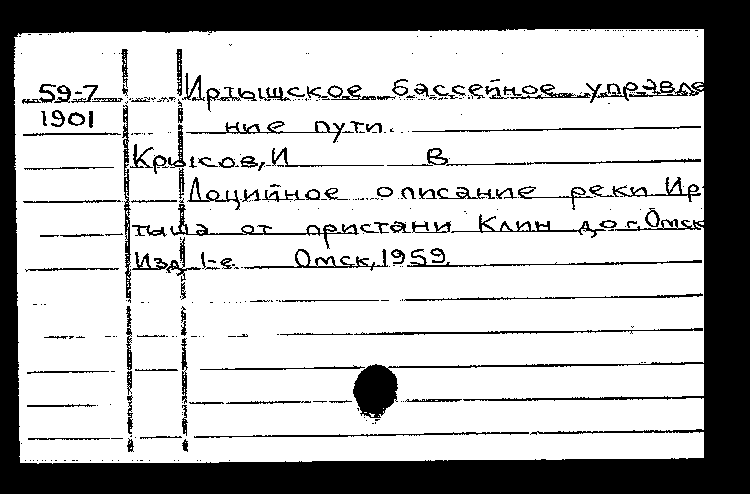 59-7 Иртышское бассейное управле
1901 ние пути.
Крысов, И В
Лоцийное описание реки Ир-
тыша от пристани Клин до г. Омск
Изд 1-е Омск, 1959.